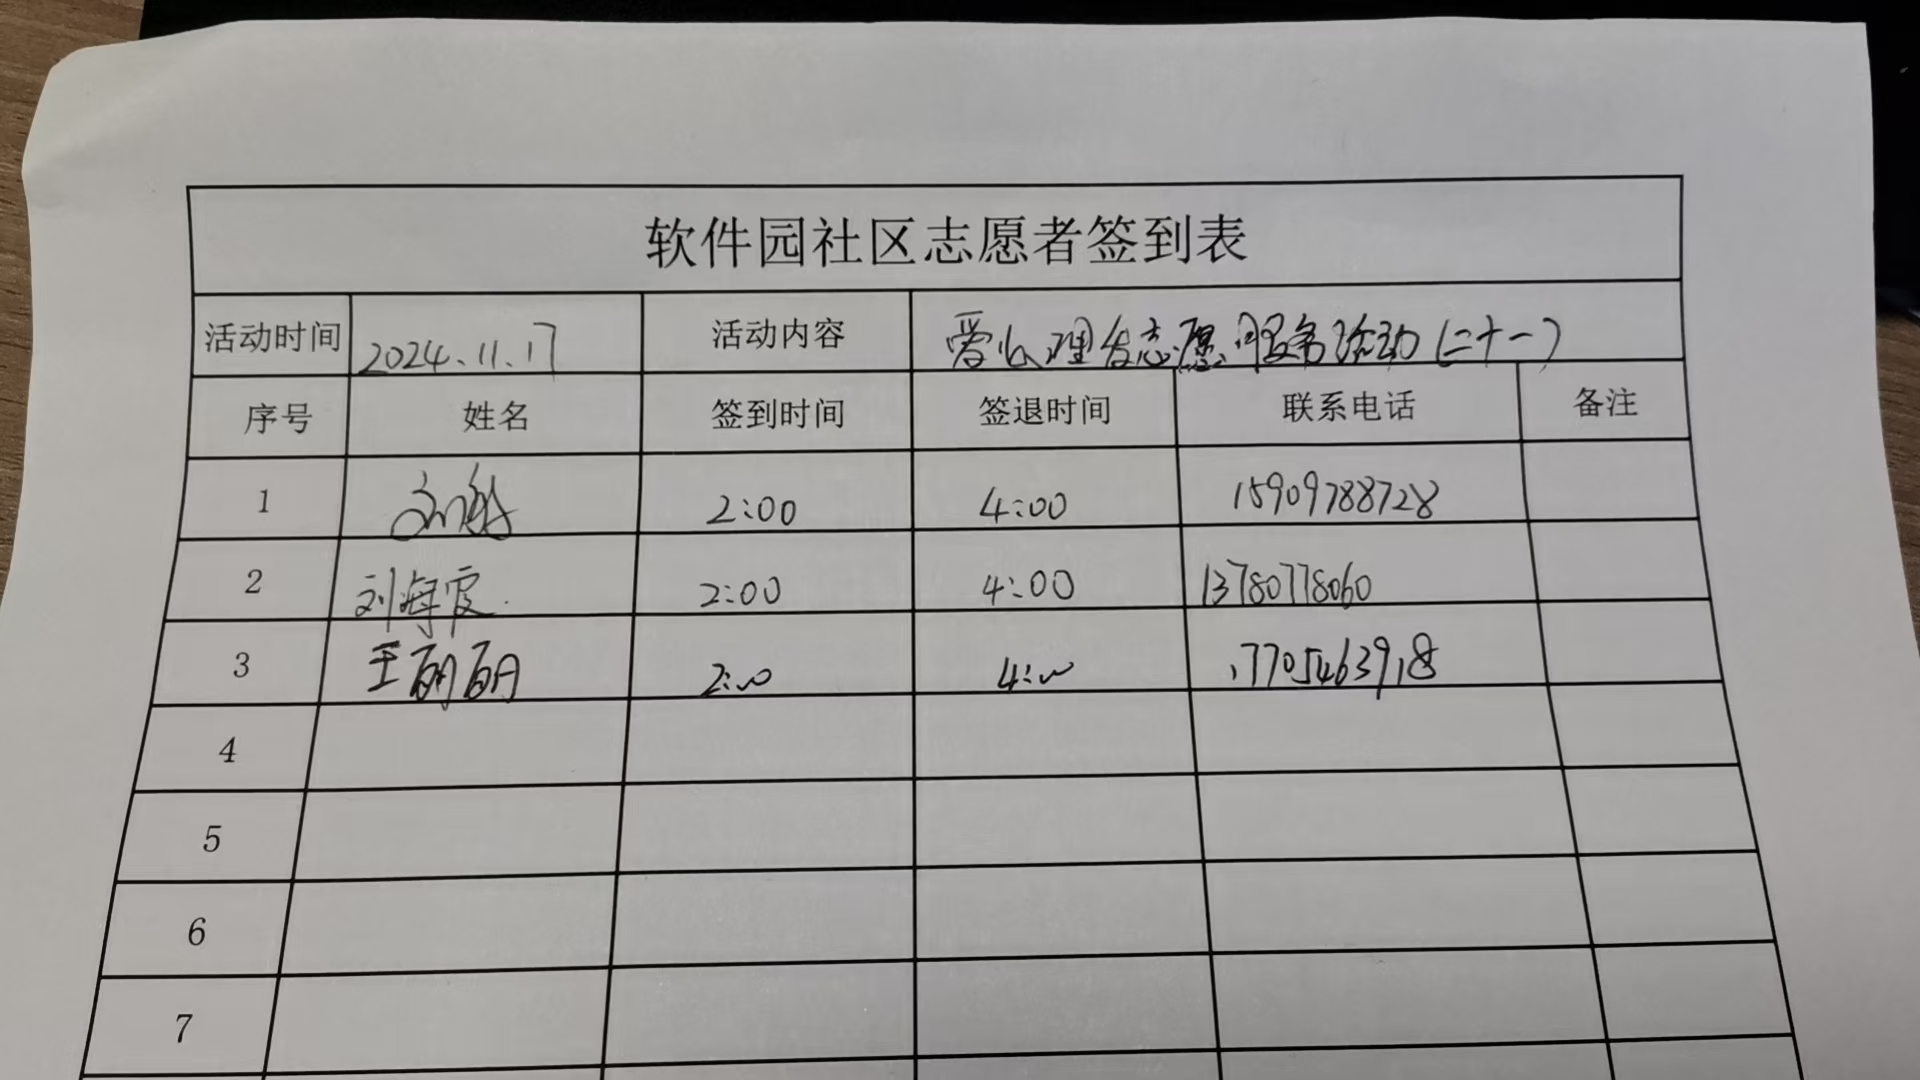 软件园社区志愿者签到表
活动时间 2024.11.17 活动内容 爱心理发志愿服务活动(二十一)
序号 姓名 签到时间 签退时间 联系电话 备注
1 2:00 4:00 15909788728
2 刘海霞 2:00 4:00 13780778060
3 王萌萌 2:00 4:00 17705463918
4
5
6
7